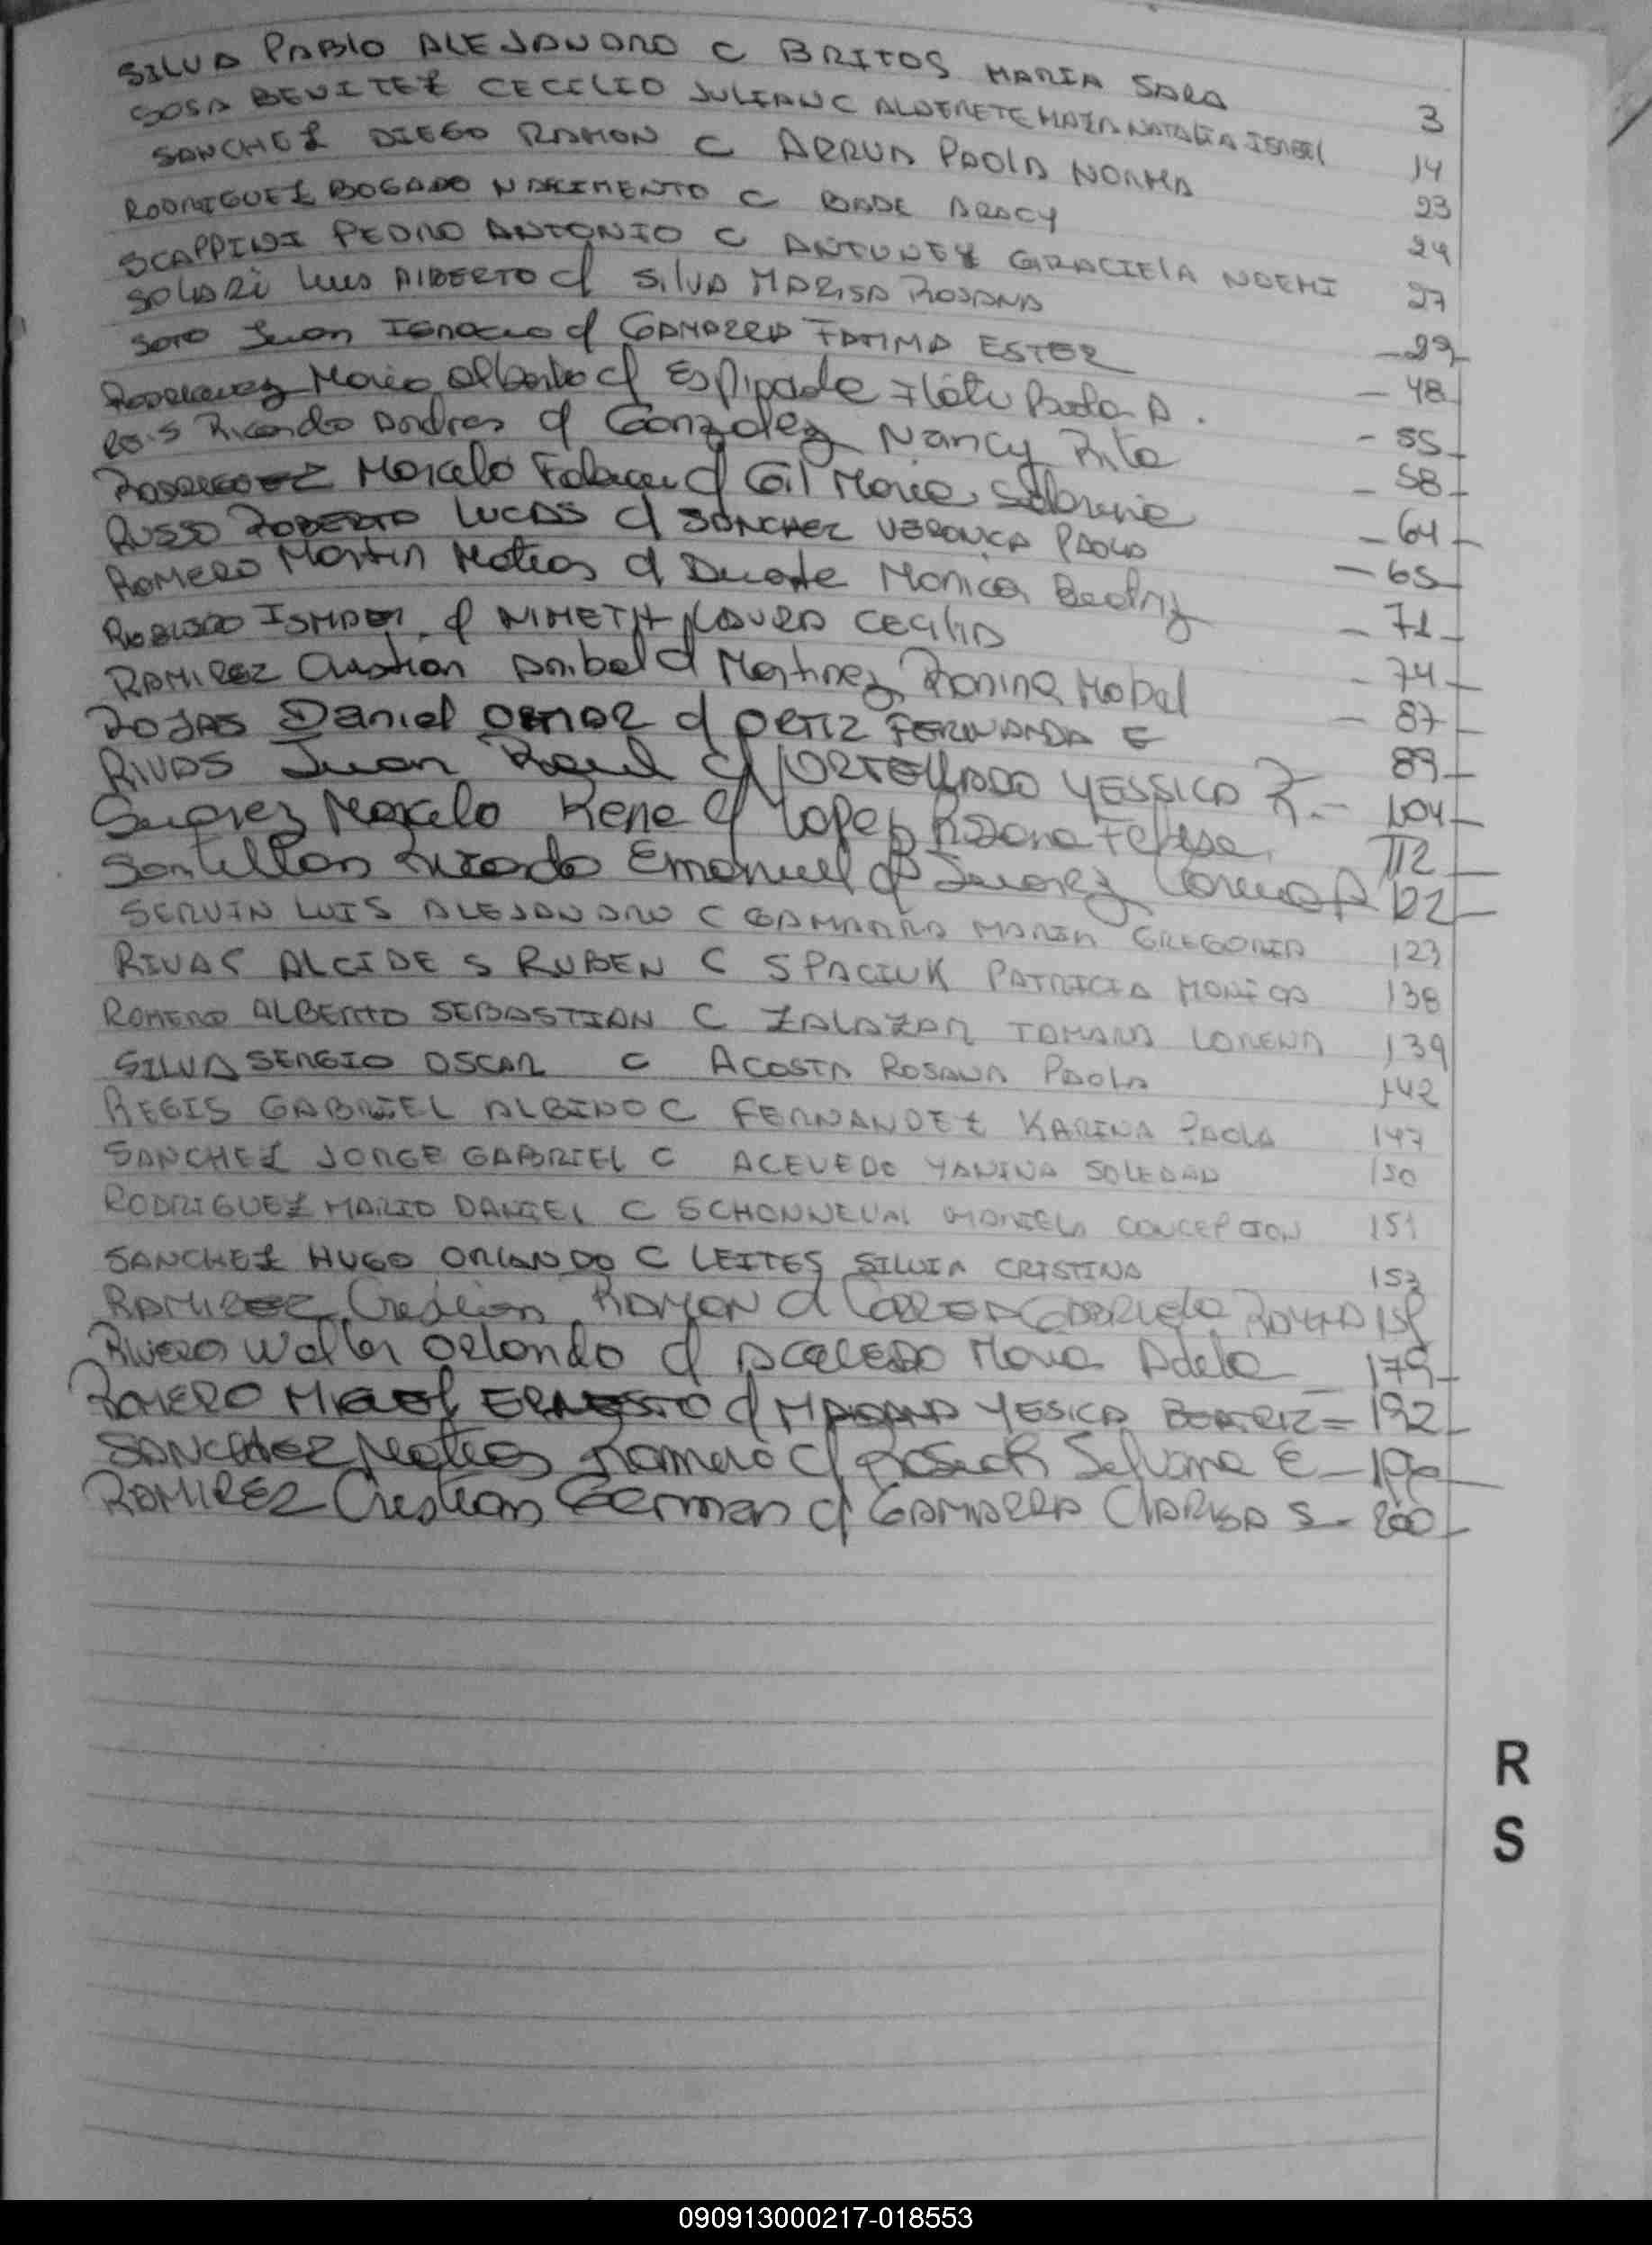 SILVA PABLO ALEJANDRO C BRITOS MARIA SARA 3
SOSA BENITEZ CECILIO JULIAN C ALDERETE NATALIA ISABEL 14
SANCHEZ DIEGO RAMON C ARRUA PAOLA NORMA 23
RODRIGUEZ BOGADO C ARACY 24
SCAPPINI PEDRO ANTONIO C ANTUNEZ GRACIELA NOEMI 27
SOLARI Luis ALBERTO c/ SILVA MARISA ROSANA
SOTO Juan IGNACIO c/ GAMARRA FATIMA ESTER - 29
RODRIGUEZ Mario Alberto c/ Paola A. - 48
Ricardo Andres c/ Gonzalez Nancy Rita - 55
RODRIGUEZ Marcelo Fabian c/ Gil Maria - 58
RUSSO ROBERTO LUCAS c/ SANCHEZ VERONICA PAOLA - 64
ROMERO Martin Matias c/ Duarte Monica Beatriz - 65
ISMAEL c/ NIMETH LAURA CECILIA - 71
RAMIREZ Cristian Anibal c/ Martinez Romina Mabel - 74
ROJAS Daniel OMAR c/ ORTIZ FERNANDA E - 87
RIVAS Juan Raul c/ ORTELLADO YESSICA R.- 89
Suarez Marcelo Rene c/ Lopez 104
Santillan Emanuel c/ Suarez 112
SERVIN LUIS ALEJANDRO C GAMARRA MARIA GREGORIA 123
RIVAS ALCIDES RUBEN C SPACIUK PATRICIA MONICA 138
ROMERO ALBERTO SEBASTIAN C ZALAZAR TAMARA LORENA 139
SILVA SERGIO OSCAR C ACOSTA ROSANA PAOLA 142
REGIS GABRIEL ALBINO C FERNANDEZ KARINA PAOLA 147
SANCHEZ JORGE GABRIEL C ACEVEDO YANINA SOLEDAD 150
RODRIGUEZ MARIO DANIEL C MARIELA CONCEPCION 151
SANCHEZ HUGO ORLANDO C LEITES SILVIA CRISTINA 153
RAMIREZ Cristian RAMON c/ GABRIELA
Rivero Walter Orlando c/ Maria Adela - 179
ROMERO MIGUEL ERNESTO c/ YESICA BEATRIZ = 192
SANCHEZ Matias Ramiro c/ Silvana E -
RAMIREZ Cristian German c/ GAMARRA CLARISA S - 200
R
S
090913000217-018553